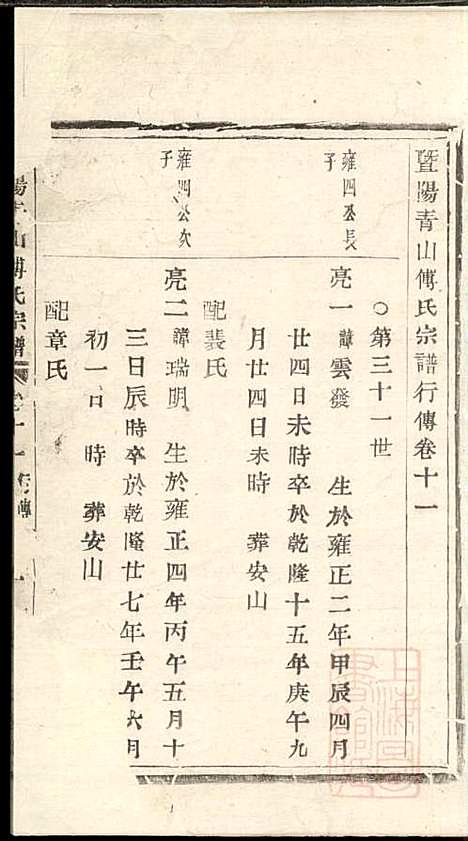 暨陽青山傅氏宗譜行傳卷十一
○第三十一世
雍四公長子
亮一諱雲發　生於雍正二年甲辰四月
廿四日未時卒於乾隆十五年庚午九
月廿四日未時　葬安山
配裴氏
雍四公次子
亮二諱瑞明　生於雍正四年丙午五月十
三日辰時卒於乾隆廿七年壬午六月
初一日　時　葬安山
配章氏
陽青山傅氏宗譜
卷十一 行傳
一
上海圖書館藏